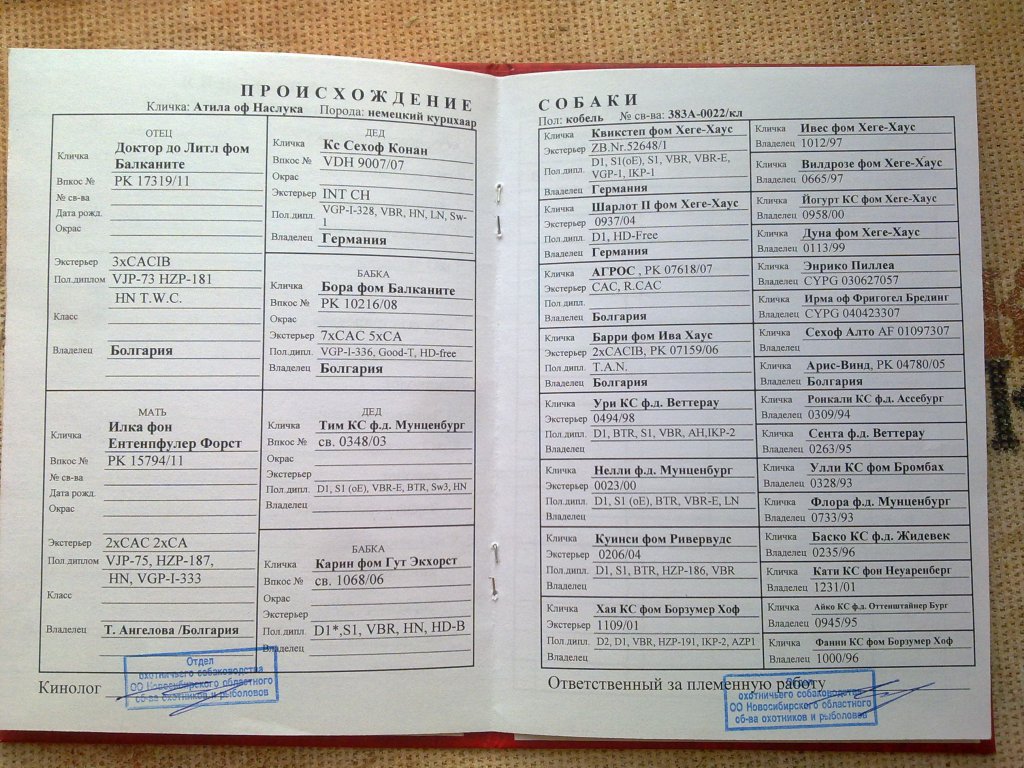 ПРОИСХОЖДЕНИЕ
Кличка: Атила оф Наслука Порода: немецкий курцхаар
ОТЕЦ
Кличка Доктор до Литл фом
Балканите
Впкос № РК 17319/11
№ св-ва
Дата рожд.
Окрас
Экстерьер 3xCACIB
Пол.диплом VJP-73 HZP-181
HN T.W.C.
Класс
Владелец Болгария
ДЕД
Кличка Кс Сехоф Конан
Впкос № VDH 9007/07
Окрас
Экстерьер INT CH
Пол.дипл. VGP-I-328, VBR, HN, LN, Sw-
1
Владелец Германия
БАБКА
Кличка Бора фом Балканите
Впкос № РК 10216/08
Окрас
Экстерьер 7xCAC 5xCA
Пол.дипл. VGP-I-336, Good-T, HD-free
Владелец Болгария
МАТЬ
Кличка Илка фон
Ентенпфулер Форст
Впкос № РК 15794/11
№ св-ва
Дата рожд.
Окрас
Экстерьер 2xCAC 2xCA
Пол.диплом VJP-75, HZP-187,
HN, VGP-I-333
Класс
Владелец Т. Ангелова /Болгария
ДЕД
Кличка Тим КС ф.д. Мунценбург
Впкос № св. 0348/03
Окрас
Экстерьер
Пол.дипл. D1, S1 (oE), VBR-E, BTR, Sw3, HN
Владелец
БАБКА
Кличка Карин фом Гут Экхорст
Впкос № св. 1068/06
Окрас
Экстерьер
Пол.дипл. D1*,S1, VBR, HN, HD-B
Владелец
Кинолог
Отдел
охотничьего собаководства
ОО Новосибирского областного
об-ва охотников и рыболовов
СОБАКИ
Пол: кобель № св-ва: 383А-0022/кл
Кличка Квикстеп фом Хеге-Хаус
Экстерьер ZB.Nr.52648/1
Пол.дипл. D1, S1(oE), S1, VBR, VBR-E,
VGP-1, IKP-1
Владелец Германия
Кличка Шарлот II фом Хеге-Хаус
Экстерьер 0937/04
Пол.дипл. D1, HD-Free
Владелец Германия
Кличка АГРОС , РК 07618/07
Экстерьер CAC, R.CAC
Пол.дипл.
Владелец Болгария
Кличка Барри фом Ива Хаус
Экстерьер 2xCACIB, РК 07159/06
Пол.дипл. T.A.N.
Владелец Болгария
Кличка Ури КС ф.д. Веттерау
Экстерьер 0494/98
Пол.дипл. D1, BTR, S1, VBR, AH,IKP-2
Владелец
Кличка Нелли ф.д. Мунценбург
Экстерьер 0023/00
Пол.дипл. D1, S1 (oE), BTR, VBR-E, LN
Владелец
Кличка Куинси фом Ривервудс
Экстерьер 0206/04
Пол.дипл. D1, S1, BTR, HZP-186, VBR
Владелец
Кличка Хая КС фом Борзумер Хоф
Экстерьер 1109/01
Пол.дипл. D2, D1, VBR, HZP-191, IKP-2, AZP1
Владелец
Кличка Ивес фом Хеге-Хаус
Владелец 1012/97
Кличка Вилдрозе фом Хеге-Хаус
Владелец 0665/97
Кличка Йогурт КС фом Хеге-Хаус
Владелец 0958/00
Кличка Дуна фом Хеге-Хаус
Владелец 0113/99
Кличка Энрико Пиллеа
Владелец CYPG 030627057
Кличка Ирма оф Фригогел Брединг
Владелец CYPG 040423307
Кличка Сехоф Алто AF 01097307
Владелец
Кличка Арис-Винд, РК 04780/05
Владелец Болгария
Кличка Ронкали КС ф.д. Ассебург
Владелец 0309/94
Кличка Сента ф.д. Веттерау
Владелец 0263/95
Кличка Улли КС фом Бромбах
Владелец 0328/93
Кличка Флора ф.д. Мунценбург
Владелец 0733/93
Кличка Баско КС ф.д. Жидевек
Владелец 0235/96
Кличка Кати КС фон Неуаренберг
Владелец 1231/01
Кличка Айко КС ф.д. Оттенштайнер Бург
Владелец 0945/95
Кличка Фанни КС фом Борзумер Хоф
Владелец 1000/96
Ответственный за племенную работу
охотничьего собаководства
ОО Новосибирского областного
об-ва охотников и рыболовов